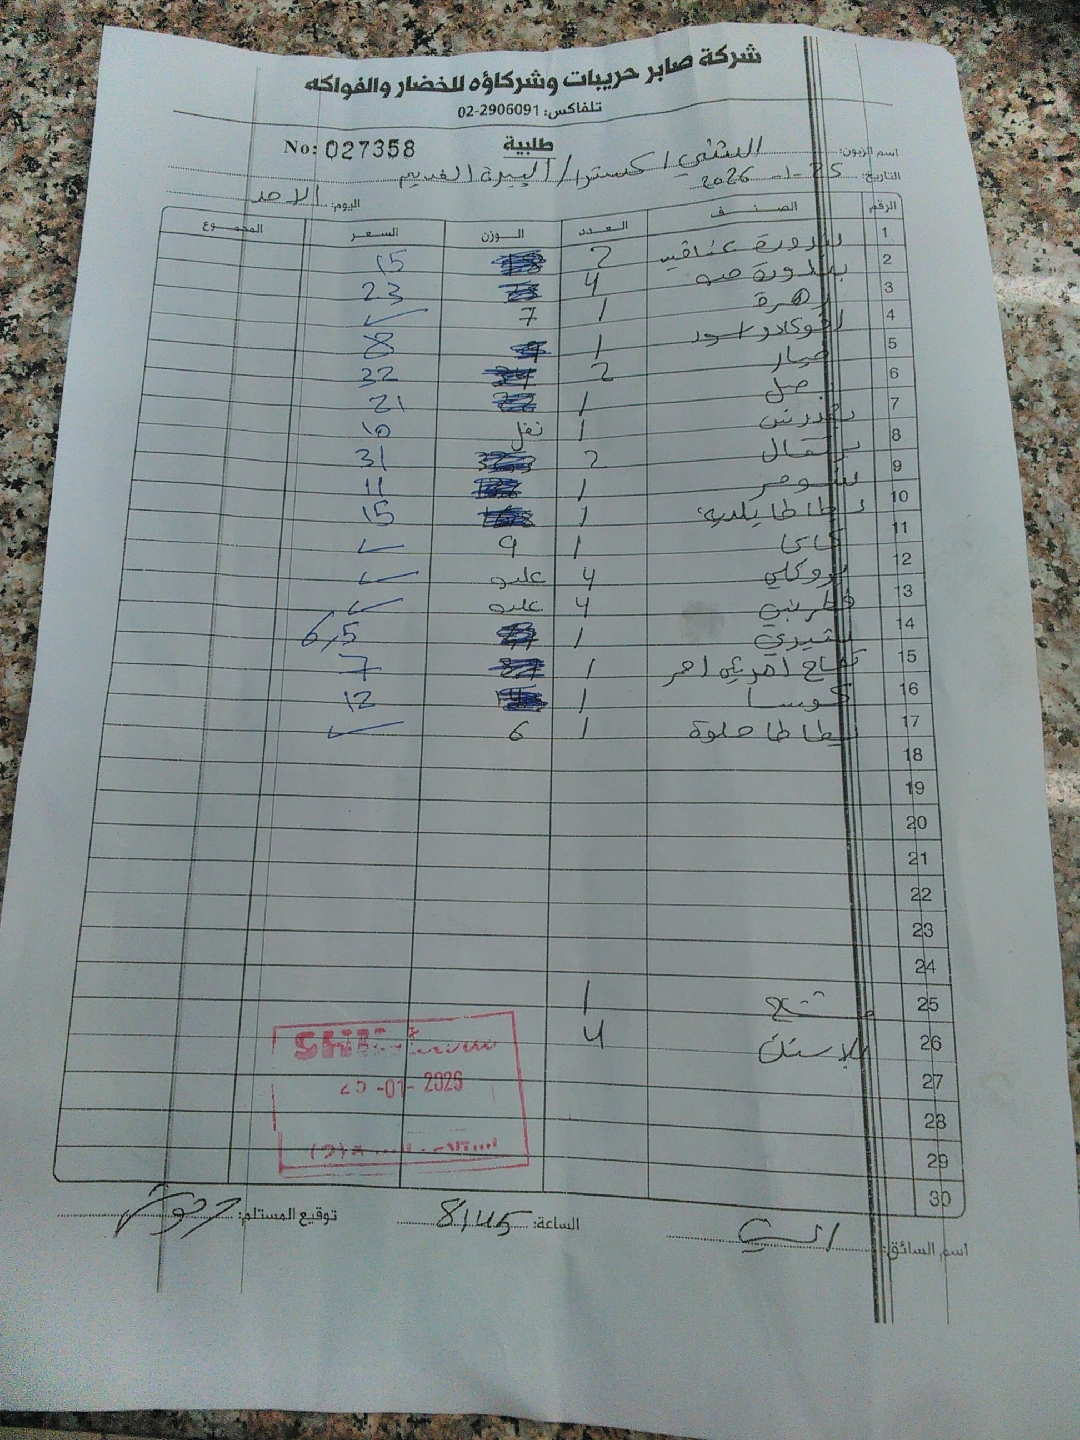 شركة صابر حريبات وشركاؤه للخضار والفواكه
تلفاكس: 02-2906091
No: 027358 طلبية
اسم الزبون: الشني اكسترا / البيرة القديم
التاريخ: 25-1-2026 اليوم: الاحد
الرقم الصنف العدد الوزن السعر المجموع
1 بندورة عناقيد 2 15
2 بندورة حب 4 23
3 زهرة 1 7 ✓
4 افوكادو اسود 1 8
5 خيار 2 32
6 بصل 1 21
7 بقدونس 1 10
8 برتقال 2 31
9 شومر 1 11
10 بطاطا بلدية 1 15
11 كاكا 1 9 ✓
12 بروكلي 4 علبه ✓
13 4 علبه ✓
14 شيري 1 6,5
15 تفاح امريكي احمر 1 7
16 كوسا 1 12
17 بطاطا حلوة 1 6 ✓
18
19
20
21
22
23
24
25 مشتاح 1
26 بلاستك 4
27
28
29
30
-01-2026
اسم السائق: الساعة: 8:45 توقيع المستلم: